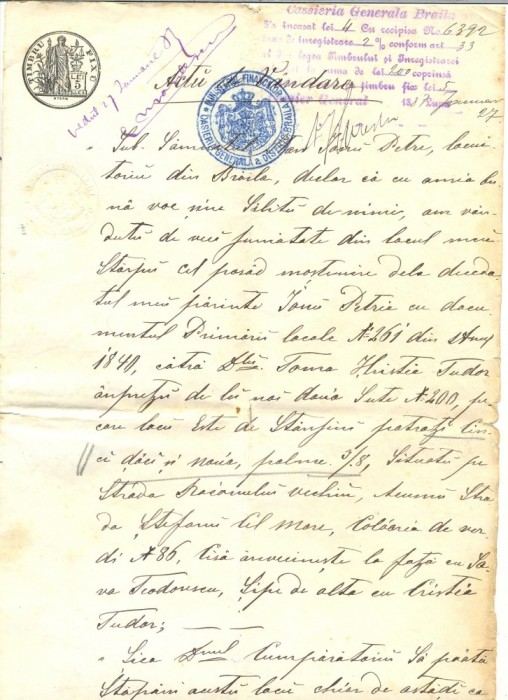 Cassieria Generala Braila
S'a incasat lei 4 Cu recipisa No. 6392
taxa de inregistrare 2% conform art 33
legea Timbrului si Inregistrarei
suma de lei 200 coprinsă
timbru fix lei 5
Cassier General
27
TIMBRU FIXU
LEI 5
Vădut 27 Ianuarie 87
Actu de Vindare
MINISTERUL FINANCELOR
CASSIERIA GENERALA A DISTRICT. BRAILA
Sub Sămnatul Ionu Petre, locui-
toriu din Braila, declar că cu a mia bu-
nă voe
dutu de veci jumatate din locul meu
Stărpu cel posăd moştinire dela deceda-
tul meu părinte Ionu Petria cu docu-
mentul Primării locale No 261 din Anul
1840, cătră Dlu Toma Hristia Tudor
ănprețu de lei noi doua Sute No 200, pe
care locu Este de Stănjini patrați cin-
ci dăci şi noua, palme 3/8, Situatu pe
Strada vechiu, Acumu Stra-
da Ştefanu Cel Mare, Coloaria de ver-
di No 86, Cisă ănvecineşte la față cu Sa-
va Teodorescu, Şipe de alta cu Cristia
Tudor;
Şica Dnul Cumpărătoriu Să poată
Stăpăni acestu locu chiar de astădi ca